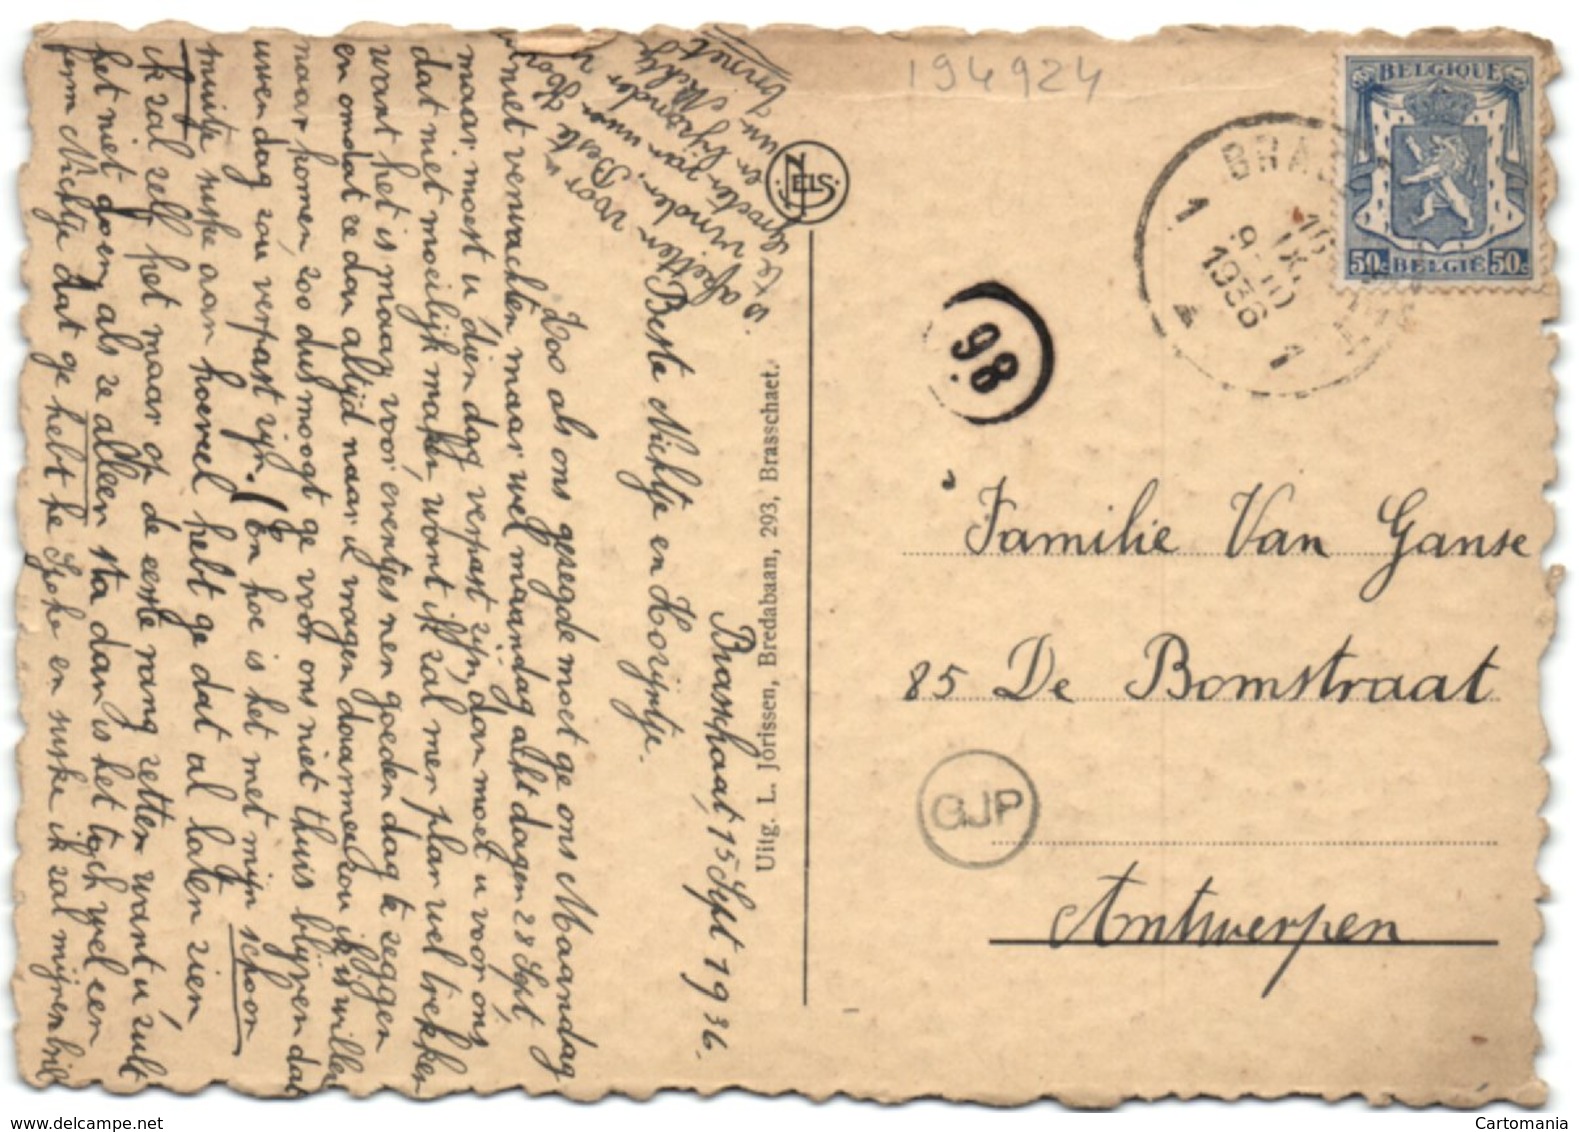 194924
BELGIQUE
50c BELGIË 50c
BRAS
1 16 IX 9-10 1936 1
98
NELS
Uitg. L. Jorissen, Bredabaan, 293, Brasschaet.
Familie Van Ganse
85 De Bomstraat
GJP
Antwerpen
Brasschaat, 15 Sept 1936.
Beste Nichtje en Kozijntje.
Zoo als ons gezegde moet ge ons Maandag
niet verwachten maar wel maandag acht dagen 28 Sept
maar moest u dien dag verpast zijn, dan moet u voor ons
dat niet moeilijk maken, want ik zal mer plan wel trekken
want het is maar voor eventjes nen goeden dag te zeggen
en omdat ze dan altijd naar u vragen daarmee zou ik is willen
naar komen, zoo dus moogt ge voor ons niet thuis blijven dat
ussen dag zou verpast zijn. (En hoe is het met mijn schoon
muite suske aan hoeveel hebt ge dat al laten zien
ik zal zelf het maar op de eerste rang zetten want u zult
het niet doen, als ze alleen sta dan is het toch wel een
ferm Nichtje dat ge hebt he Sjoke en suske ik zal mijnen bril
is afzetten voor
te vinden. Beste
groeten van uwen
en bijzonder
uw Nichtje
Irma
Cartomania